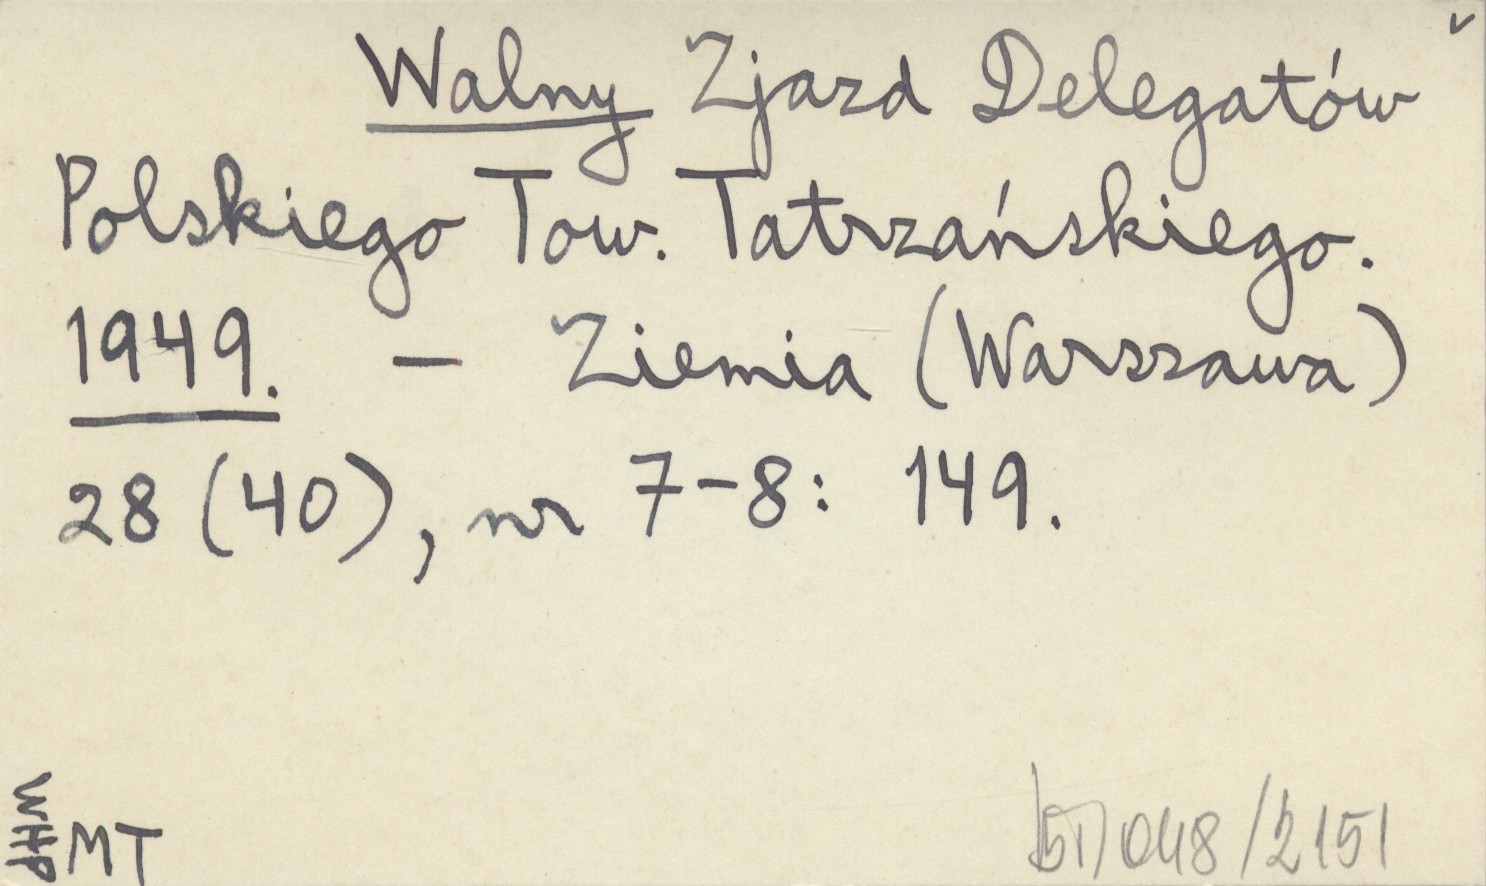 Walny Zjazd Delegatów
Polskiego Tow. Tatrzańskiego.
1949. – Ziemia (Warszawa)
28 (40), nr 7-8: 149.
WHP
MT
048/2151